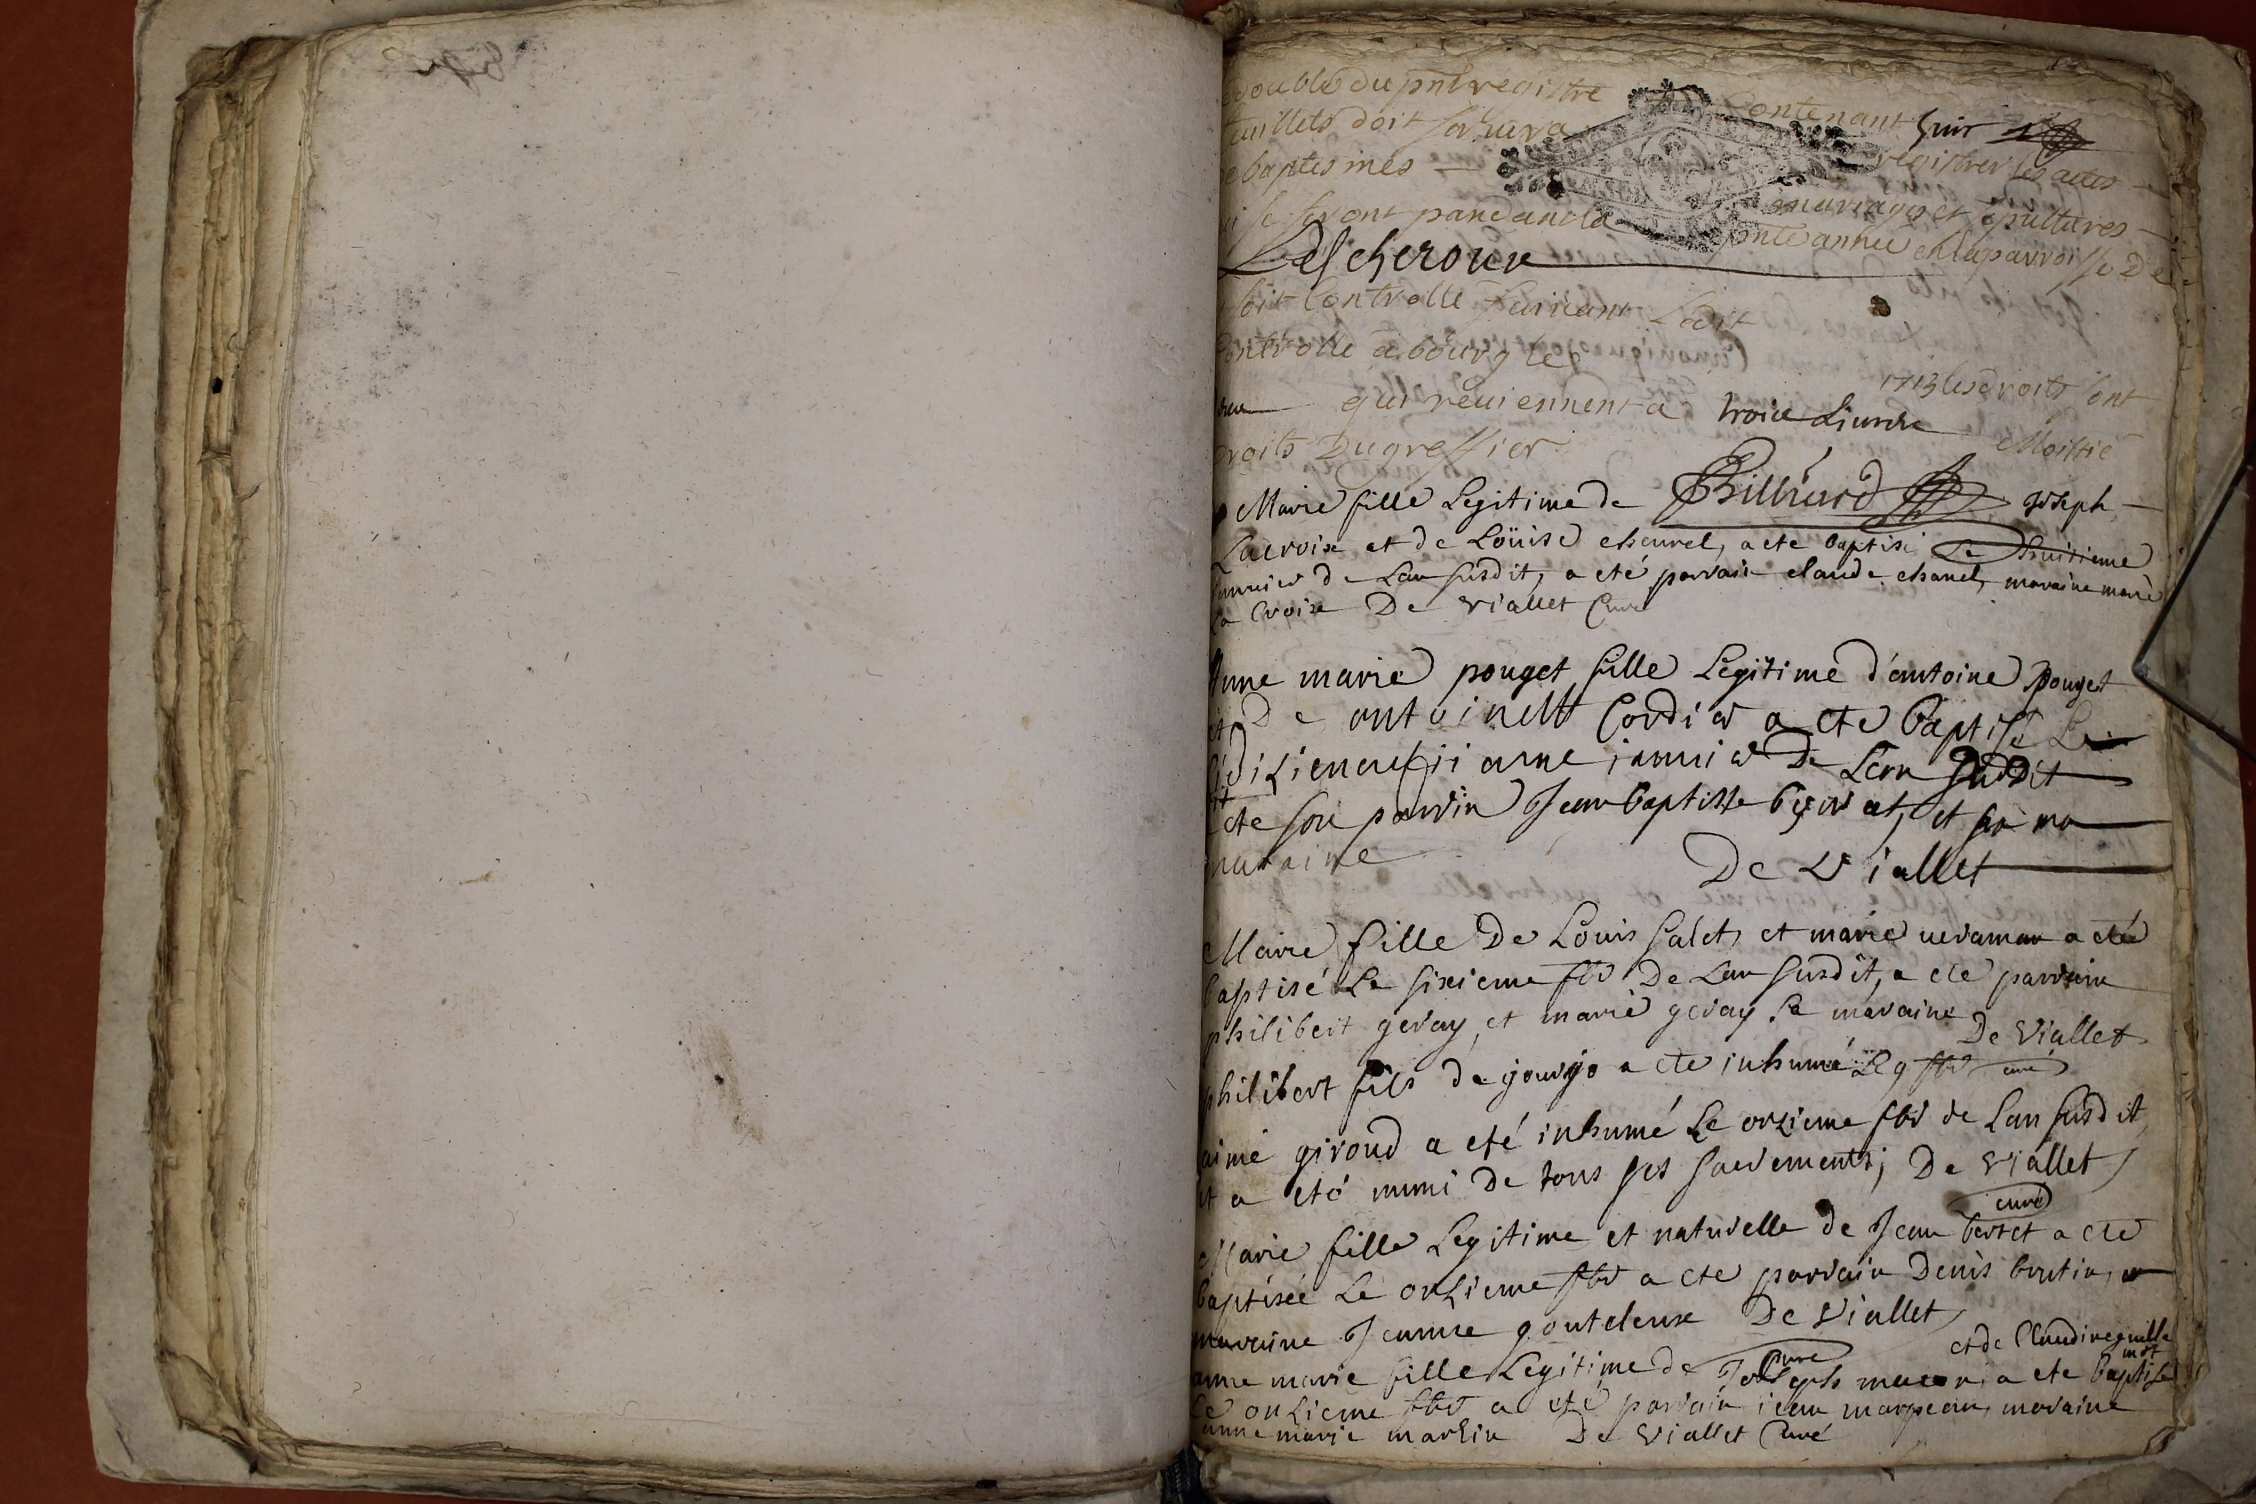 double du pnt registre Contenant huit
feuillets doit servir a registrer les actes
baptesmes mariages et sepultures
se feront pandant la pnte annee en la parroisse de
Lescheroux
soit Controllé suivant Ledit
Controllé a bourg le 1713 les droits ont
qui reviennent a trois Livres Moittié
droits Du greffier
Billiard
Marie fille Legitime de Joseph
Lacroix et de Loüise chevrel, a ete baptisé Le huitieme
janvier de Lan susdit, a eté parrain claude chanel, maraine marie
La Croix De Viallet Curé
Anne marie pouget fille Legitime d'antoine pouget
et De antoinette Cordier a ete baptisé Le
janvier De Lan susdit
ete son parrin Jean baptiste et sa ma
maraine De Viallet
Marie fille De Louis Salet et marie a eté
baptisé Le sixieme fbr De Lan susdit, a eté parrain
philibert geray et marie geray sa maraine De Viallet
curé
philibert fils de a ete inhumé Le 9 fbr
aimé giroud a eté inhumé Le onzieme fbr de Lan susdit
et a eté muni de tous ses sacrements; De Viallet
curé
Marie fille Legitime et naturelle de Jean bertet a eté
baptisée Le onzieme fbr a ete parrain Denis boutin, et
maraine Jeanne gouteleux De Viallet
curé
et de Claudine guille
mot
anne marie fille Legitime de Joseph a ete baptisé
Le onzieme fbr a eté parrain jean marpeau, maraine
anne marie martin De Viallet Curé